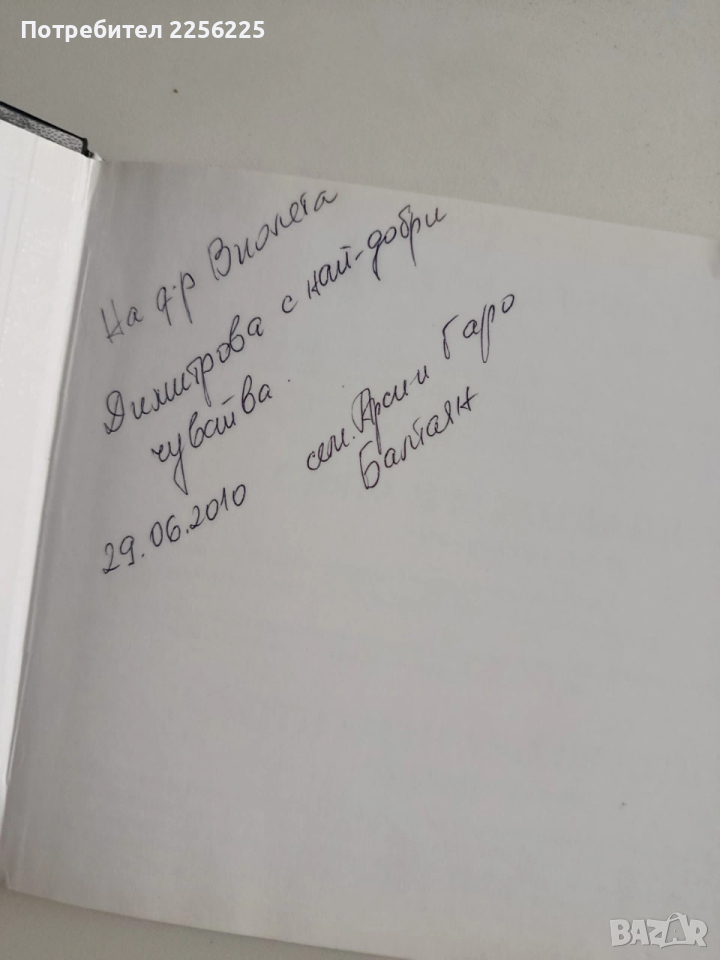 Потребител 2256225
На д-р Виолета
Димитрова с най-добри
чувайва.
29.06.2010
сем. Арси и Гаро
Балтаян
BAZAR